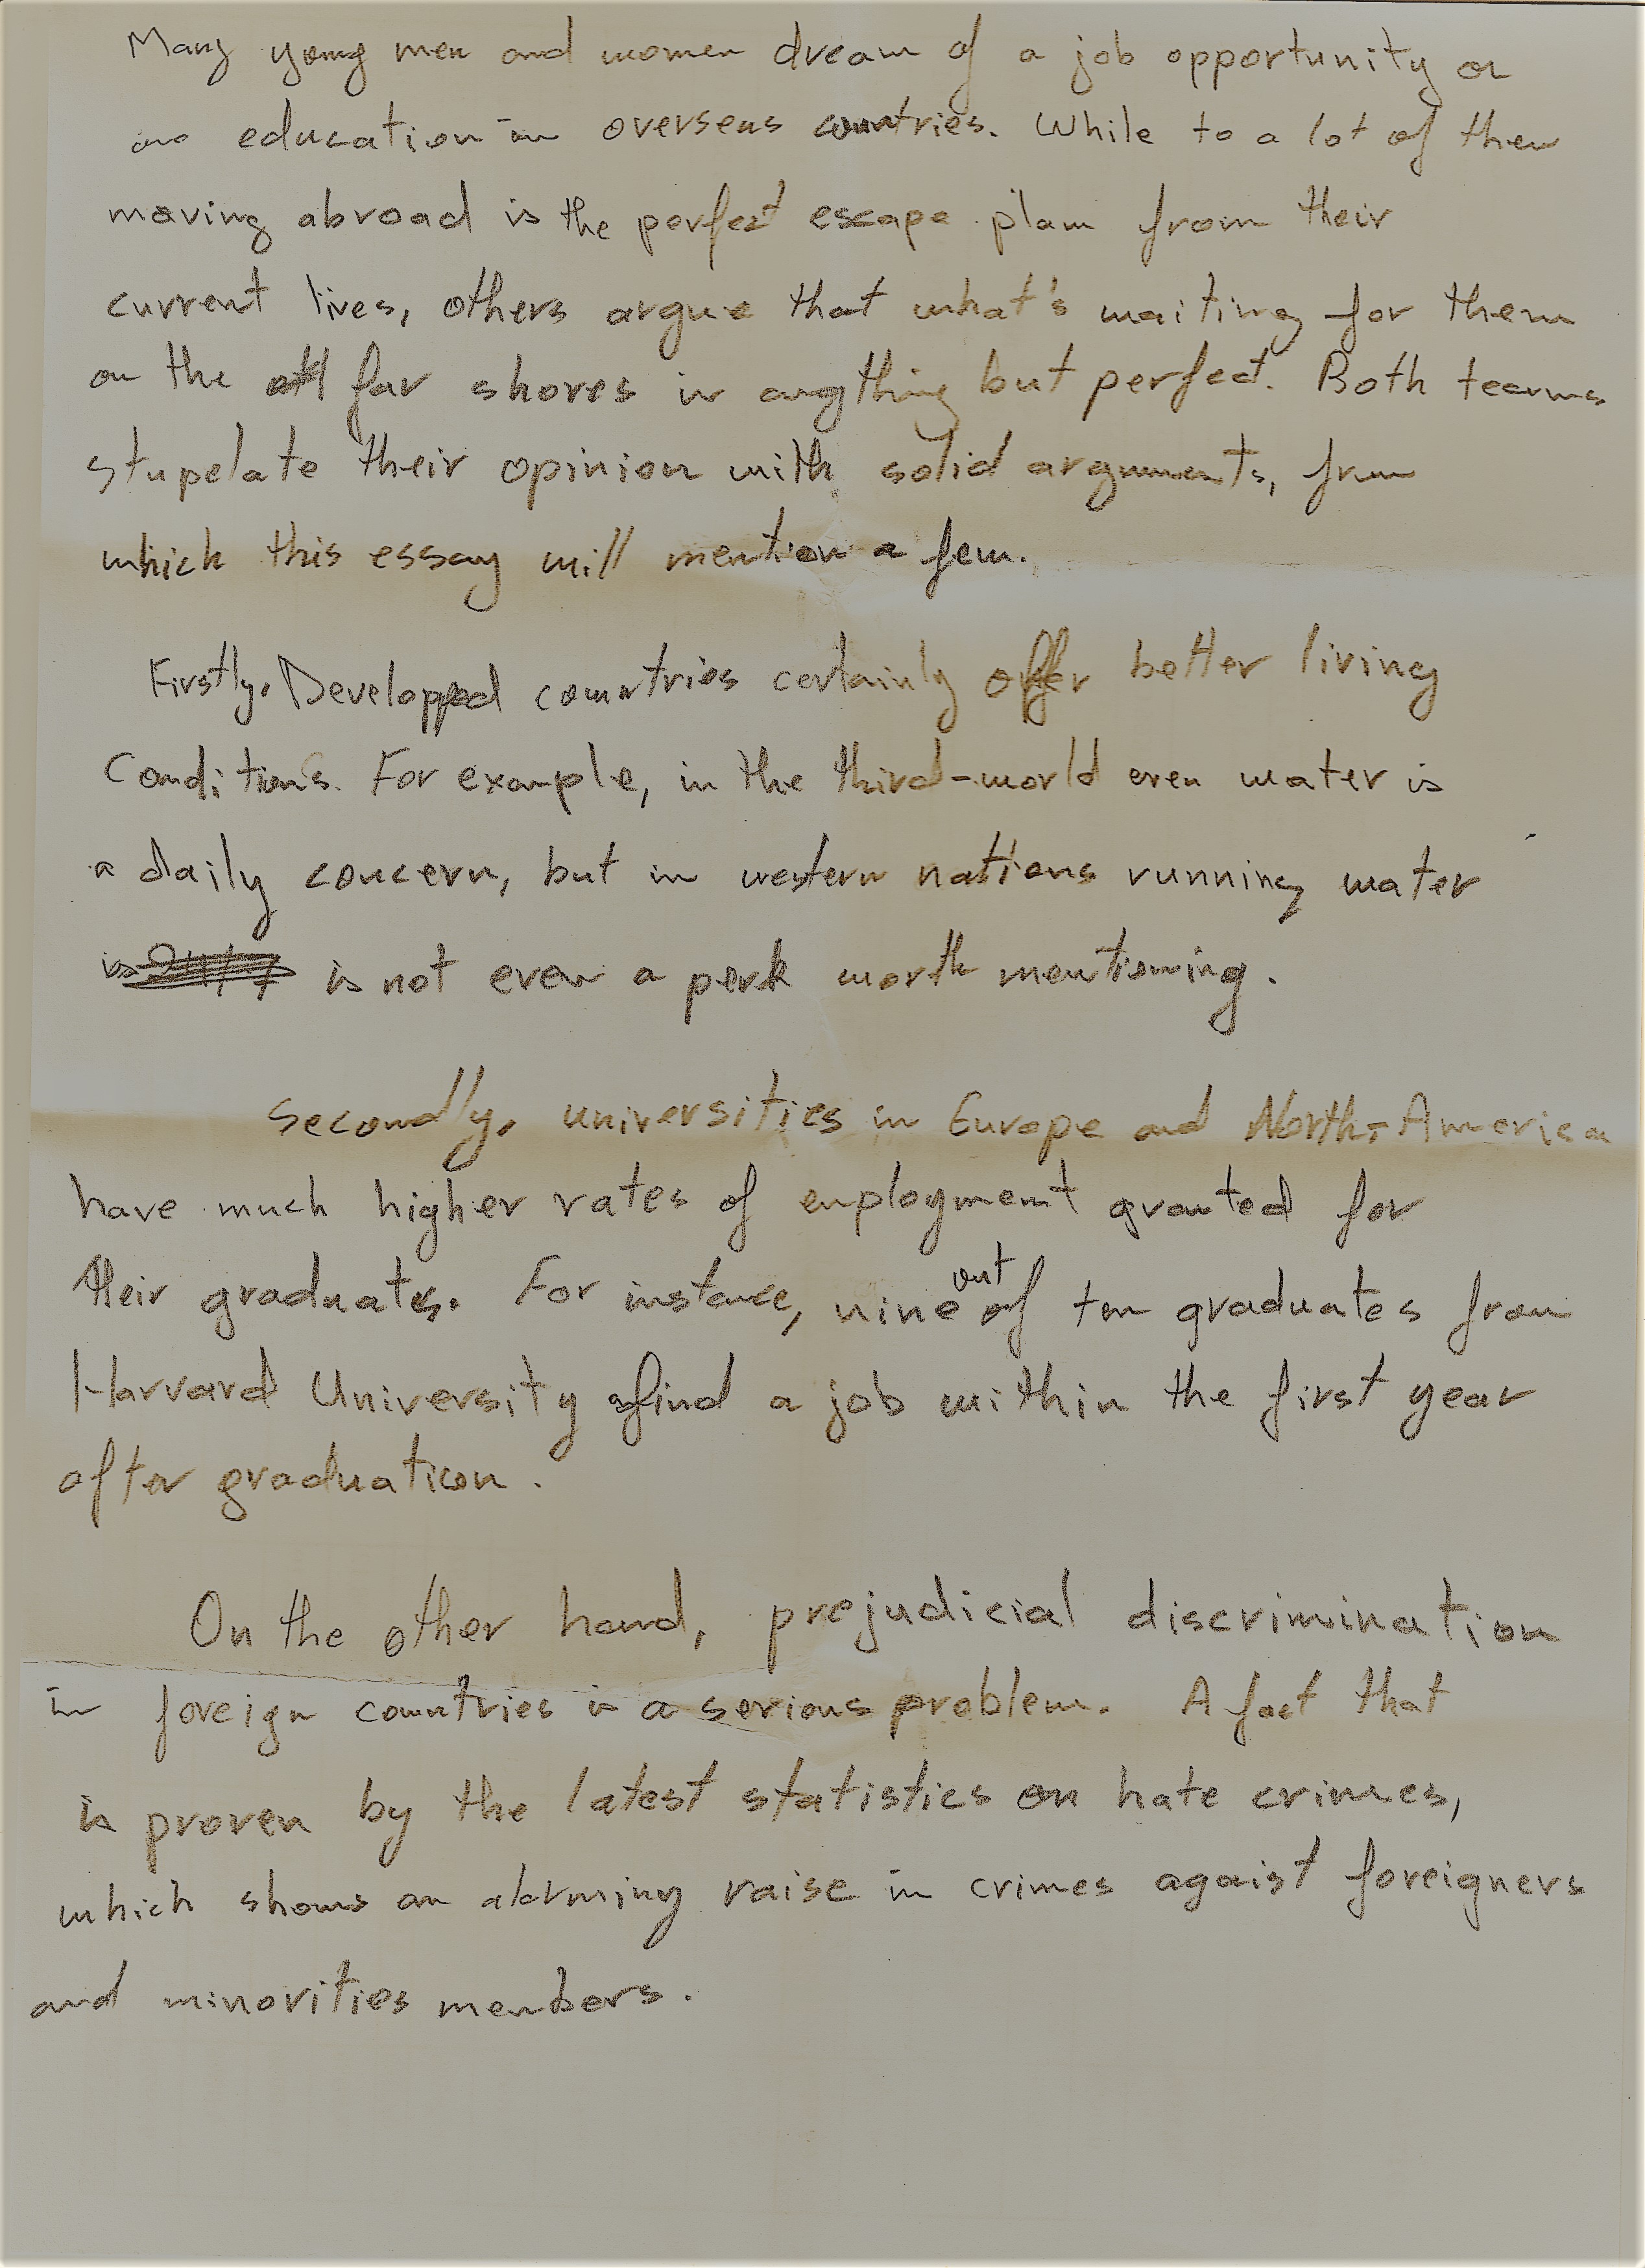 Many young men and women dream of a job opportunity or
an education in overseas countries. While to a lot of them
moving abroad is the perfect escape plan from their
current lives, others argue that what's waiting for them
on the far shores is anything but perfect. Both teams
stupelate their opinion with solid arguments, from
which this essay will mention a few.
Firstly, Developped countries certainly offer better living
Conditions. For example, in the third-world even water is
a daily concern, but in western nations running water
is not even a perk worth mentioning.
Secondly, universities in Europe and North-America
have much higher rates of employment granted for
their graduates. For instance, nine out of ten graduates from
Harvard University find a job within the first year
after graduation.
On the other hand, prejudicial discrimination
in foreign countries is a serious problem. A fact that
is proven by the latest statistics on hate crimes,
which shows an alarming raise in crimes agaist foreigners
and minorities members.